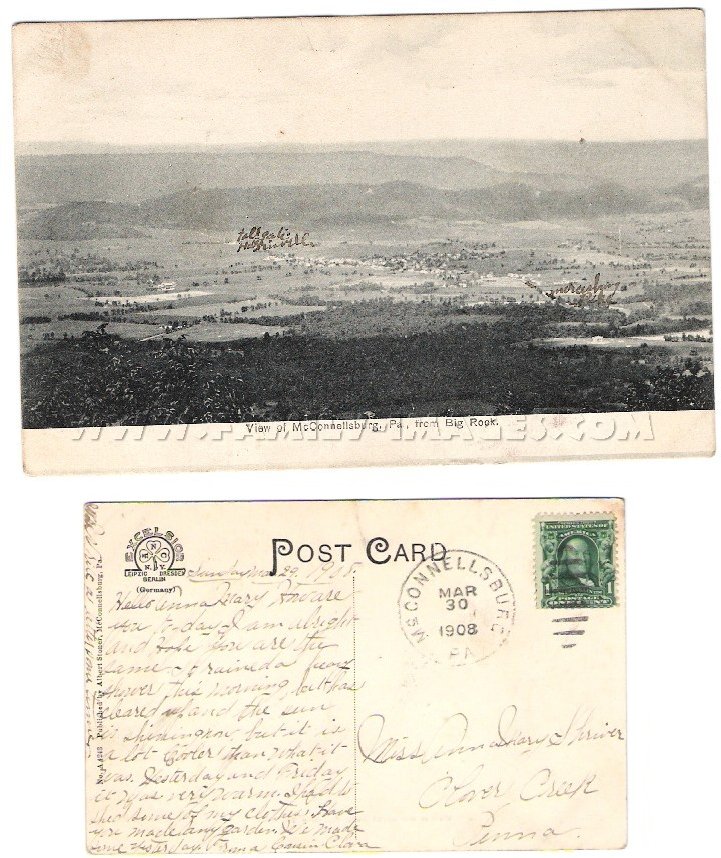 View of McConnellsburg, Pa., from Big Rock.
WWW.FAMILY-IMAGES.COM
POST CARD
EXCELSIOR
N.Y.
LEIPZIG DRESDEN
BERLIN
(Germany)
Published by Albert Stoner, McConnellsburg, Pa.
McCONNELLSBURG
MAR
30
1908
PA.
UNITED STATES OF
AMERICA
POSTAGE
ONE CENT
29, 1908
Hello Anna Mary, How are
you to-day I am alright
and hope you are the
same. It rained a
shower this morning, but has
cleared up and the sun
is shining now, but it is
a lot cooler than what it
was. Yesterday and Friday
it was very warm I had to
shed some of my clothes. Have
you made any garden. We made
some yesterday. Cousin Clara
Miss Anna Mary Shriver
Clover Creek
Penna.